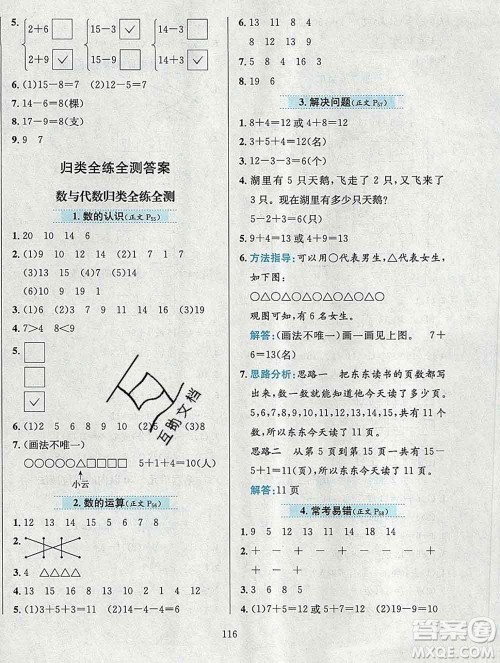 5. 2+6 15-3 ✓ 14-6
2+9 ✓ 15-8 14-3 ✓
6. (1)15-8=7 (2)12-5=7
7. 14-6=8(棵)
8. 17-9=8(支)
9. 9 7
归类全练全测答案
数与代数归类全练全测
1. 数的认识(正文 P55)
1. 20 10 14 6
2. (1)2 (2)0 (3)17 (4)19 (5)17 15
(6)19
3. (1)0 1 18 (2)13 15 (3)19
4. 7>4 8<9
5.
✓
6. 1 2 5 8 10 12 15
7. (画法不唯一)
○○○○○△□□□□ 5+1+4=10(人)
小云
2. 数的运算(正文 P56)
1. 12 13 14 16 6 15 11
2.
3. 4 △△△△
4. (1)8 8 (2)9 10 11 13 15
5. (1)9+8=17 (2)18-5=13
6. 13 8 11 8 15 6 14 7
+ - + + - -
7. 13 17 6 8 4 13
8. 19 6
3. 解决问题(正文 P57)
1. 8+4=12 或 4+8=12
2. 3+6+3=12(名)
3. 8+5=13 或 5+8=13
4. 湖里有 5 只天鹅,飞走了 2 只,又飞走
了 3 只。现在湖里有多少只天鹅?
5-2-3=0(只)
5. 9+4=13 或 4+9=13
6. 方法指导:可以用○代表男生,△代表女生,
如下图:
○△○△○△○△○△○△○
观图可知有 6 名女生。
解答:(画法不唯一)画一画见上图。 7+
6=13(名)
7. 思路分析:思路一 把东东读书的页数都写
出来,数一数就可以知道他今天读了几页。
5,6,7,8,9,10,11,12,13,14,15,共有 11
个数,所以东东今天读了 11 页。
思路二 从第 5 页到第 15 页一共有 11
页,所以东东今天读了 11 页。
解答:11 页
4. 常考易错(正文 P58)
1. 9 13 11 13 15 18 8 14
2. + - + + - + - +
3. (1)7+5=12 或 5+7=12
(2)19-8=11 或 19-11=8
互助文档
116
答案圈
MXQE.COM